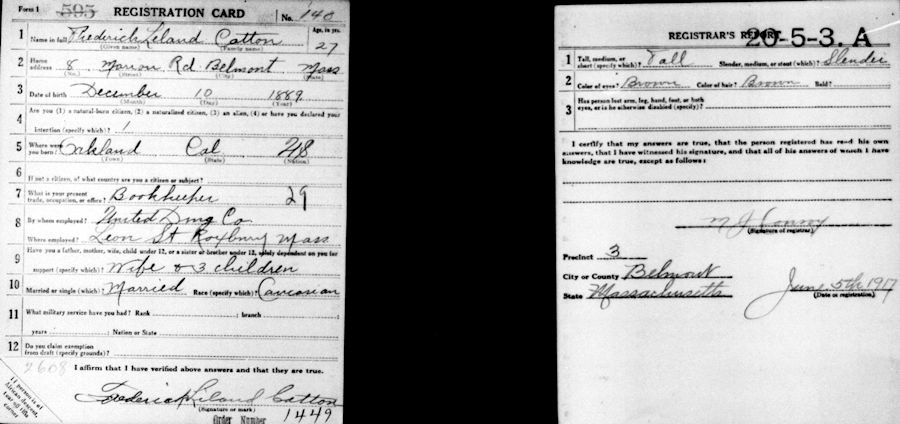 Form 1 595 REGISTRATION CARD No. 140
1 Name in full Frederick Leland Catton Age, in yrs. 27
(Given name) (Family name)
2 Home address 8 Marion Rd Belmont Mass
(No.) (Street) (City) (State)
3 Date of birth December 10 1889
(Month) (Day) (Year)
4 Are you (1) a natural-born citizen, (2) a naturalized citizen, (3) an alien, (4) or have you declared your
intention (specify which)? 1
5 Where were you born? Oakland Cal
(Town) (State) (Nation)
6 If not a citizen, of what country are you a citizen or subject?
7 What is your present trade, occupation, or office? Bookkeeper 29
8 By whom employed? United Drug Co.
Where employed? Leon St Roxbury Mass
9 Have you a father, mother, wife, child under 12, or a sister or brother under 12, solely dependent on you for
support (specify which)? Wife & 3 children
10 Married or single (which)? Married Race (specify which)? Caucasian
11 What military service have you had? Rank ; branch
years ; Nation or State
12 Do you claim exemption from draft (specify grounds)?
2608 I affirm that I have verified above answers and that they are true.
If person is of African descent, tear off this corner
Frederick Leland Catton
(Signature or mark)
Order Number 1449
REGISTRAR'S REPORT 20-5-3. A
1 Tall, medium, or short (specify which)? Tall Slender, medium, or stout (which)? Slender
2 Color of eyes? Brown Color of hair? Brown Bald?
3 Has person lost arm, leg, hand, foot, or both eyes, or is he otherwise disabled (specify)?
I certify that my answers are true, that the person registered has read his own
answers, that I have witnessed his signature, and that all of his answers of which I have
knowledge are true, except as follows:
(Signature of registrar)
Precinct 3
City or County Belmont
State Massachusetts June 5th 1917
(Date or registration)